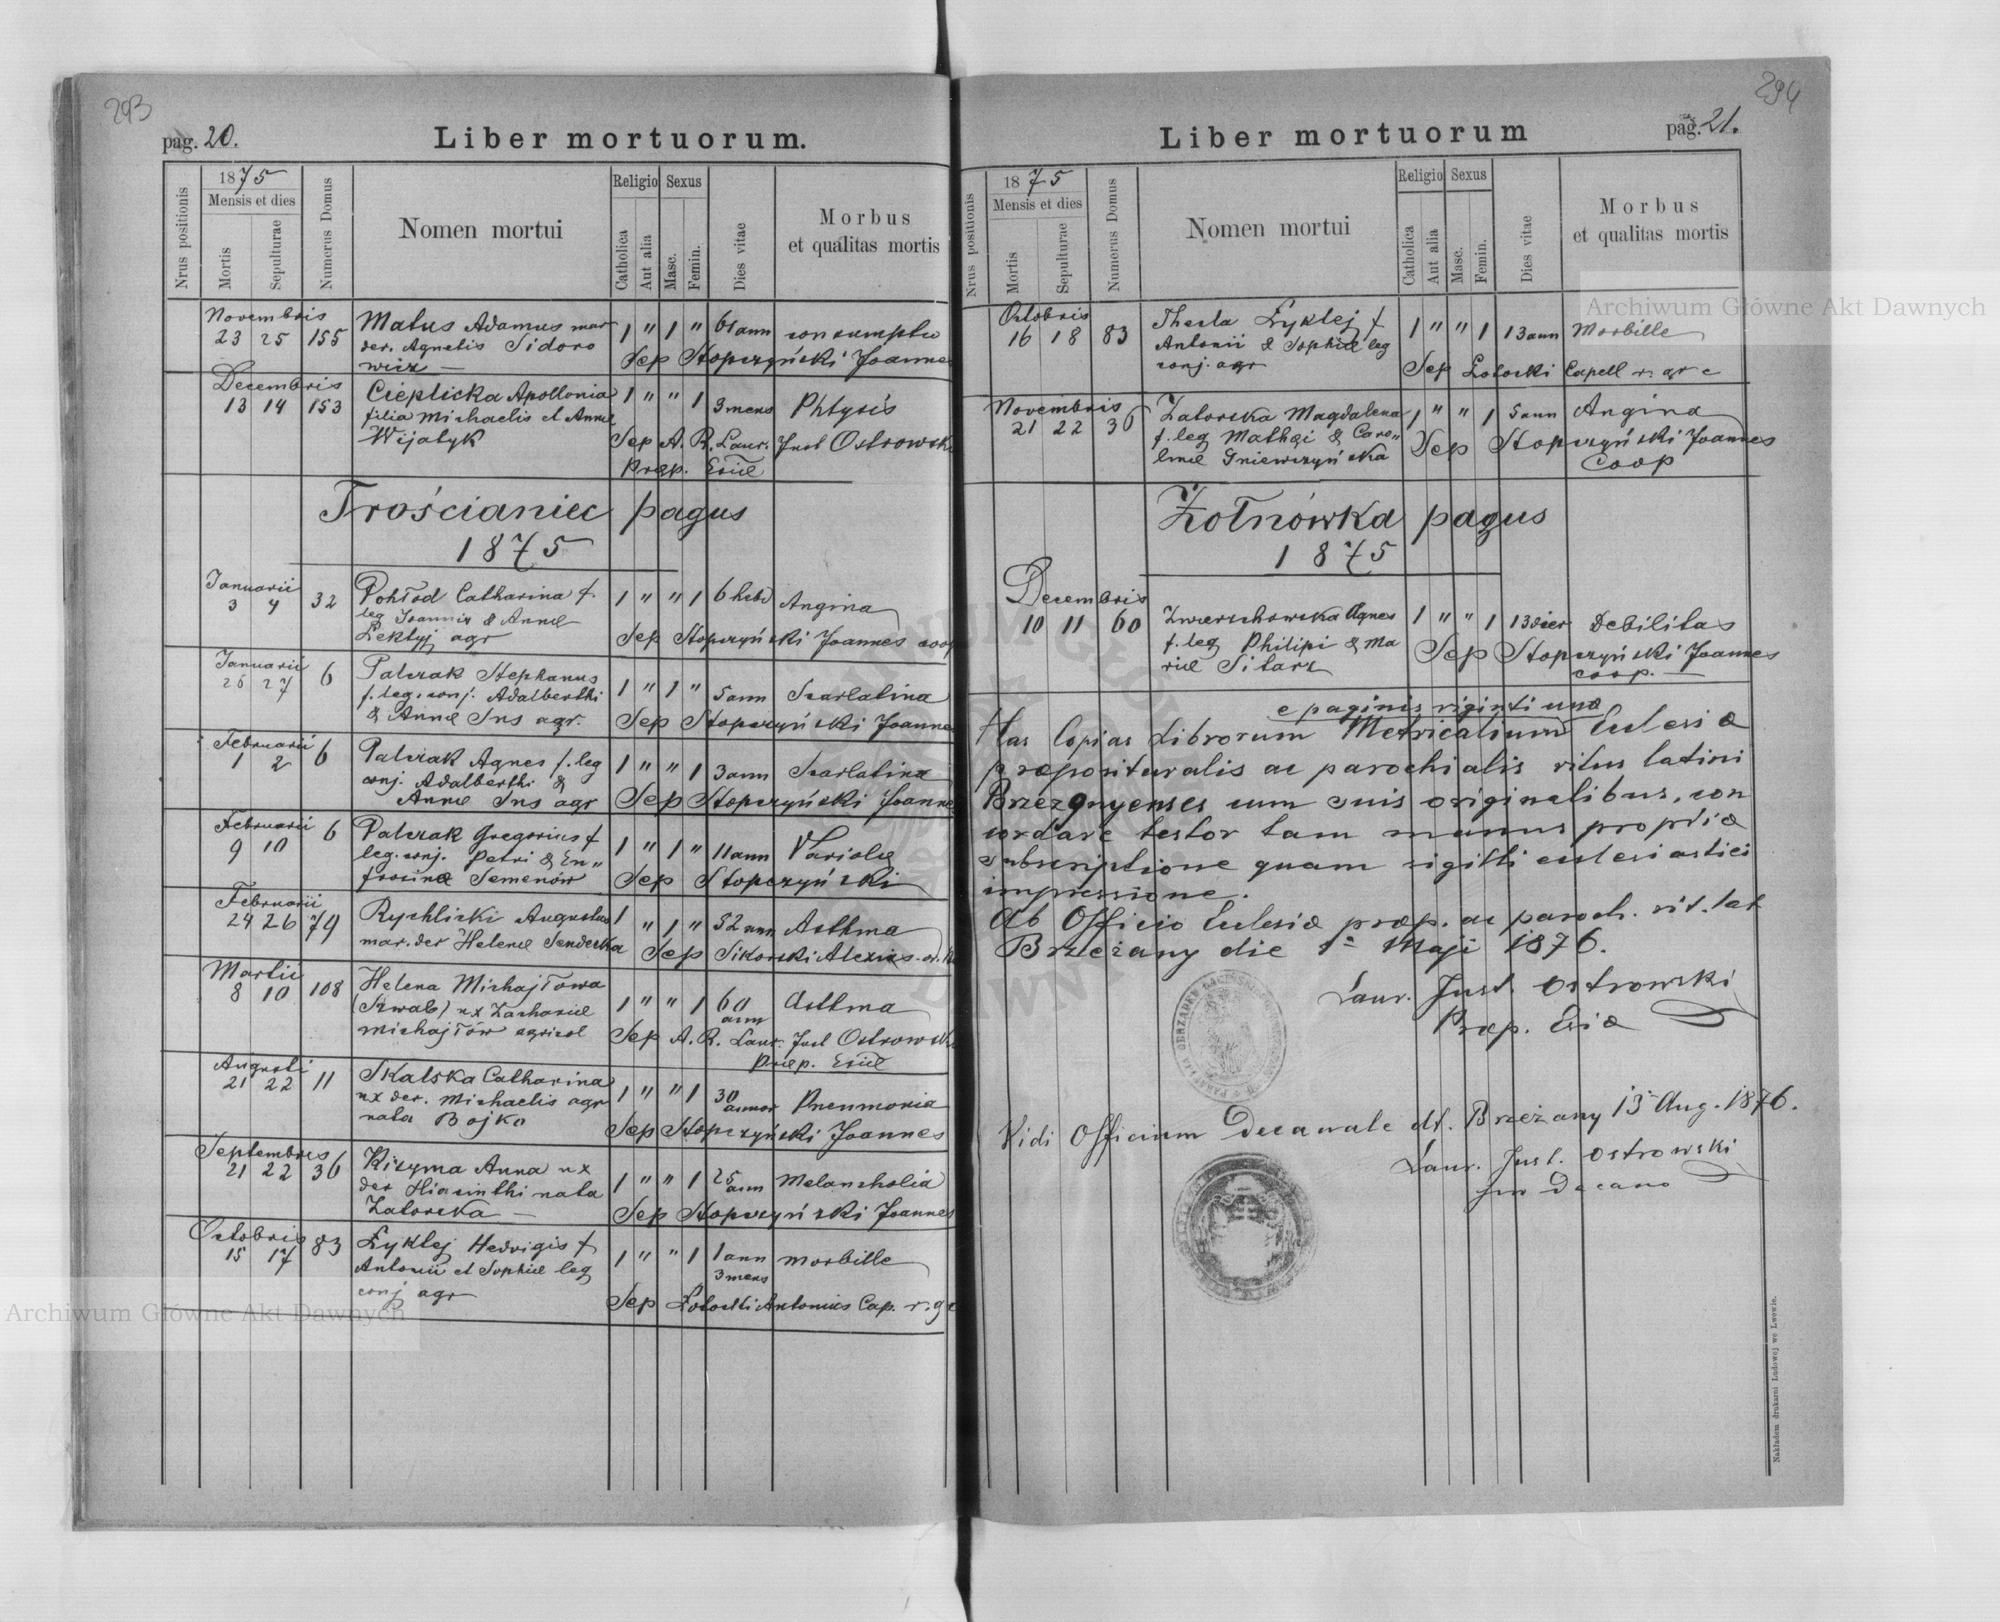 293
pag. 20.
Liber mortuorum.
Nrus positionis
1875
Mensis et dies
Mortis
Sepulturae
Numerus Domus
Nomen mortui
Religio
Catholica
Aut alia
Sexus
Masc.
Femin.
Dies vitae
Morbus
et qualitas mortis
Novembris
23 25 155 Matus Adamus mar 1 " 1 " 61 ann consumptio
der. Agnetis Sidoro Sep Stopczyński Joannes
wicz —
Decembris
13 14 153 Cieplicka Apollonia 1 " " 1 3 mens Phtysis
filia Michaelis et Annæ
Wijatyk Sep A. R. Laur. Just Ostrowski
Præp. Eccl
Trościaniec pagus
1875
Januarii
3 4 32 Pohłod Catharina f. 1 " " 1 6 hebd Angina
leg Joannis & Annæ
Lektyj agr Sep Stopczyński Joannes coop
Januarii
26 27 6 Palczak Stephanus 1 " 1 " 5 ann Scarlatina
f. leg. conj. Adalberthi
& Annæ Sns agr. Sep Stopczyński Joannes
Februarii
1 2 6 Palczak Agnes f. leg 1 " " 1 3 ann Scarlatina
conj. Adalberthi &
Annæ Sns agr Sep Stopczyński Joannes
Februarii
9 10 6 Palczak Gregorius f 1 " 1 " 11 ann Variolæ
leg. conj. Petri & Eu"
frosinæ Semenów Sep Stopczyński
Februarii
24 26 79 Rychlicki Augustus 1 " 1 " 32 ann Asthma
mar. der Helenæ Sendecka Sep Sikorski Alexius
Martii
8 10 108 Helena Michajłowa 1 " " 1 60 ann Asthma
(Kwab) ux Zachariæ
Michajłów agricol Sep A. R. Laur. Just Ostrowski
Præp. Eccl
Augusti
21 22 11 Skalska Catharina 1 " " 1 30 annor Pneumonia
ux der. Michaelis agr
nata Bojko Sep Stopczyński Joannes
Septembris
21 22 36 Kizyma Anna ux 1 " " 1 25 ann Melancholia
der Hiacinthi nata
Zatorska — Sep Stopczyński Joannes
Octobris
15 17 83 Łyktej Hedvigis f 1 " " 1 1 ann 3 mens Morbille
Antonii et Sophiæ leg
conj agr Sep Łotocki Antonius Cap. r. g c
294
pag. 21.
Liber mortuorum
Nrus positionis
1875
Mensis et dies
Mortis
Sepulturae
Numerus Domus
Nomen mortui
Religio
Catholica
Aut alia
Sexus
Masc.
Femin.
Dies vitae
Morbus
et qualitas mortis
Octobris
16 18 83 Thecla Łyktej f 1 " " 1 13 ann Morbille
Antonii & Sophiæ leg
conj. agr Sep Łotocki Capell r. gr c
Novembris
21 22 36 Zatorska Magdalena 1 " " 1 5 ann Angina
f. leg Mathei & Caro"
linæ Gniewczyńska Sep Stopczyński Joannes
coop
Żołnówka pagus
1875
Decembris
10 11 60 Zwierzchowska Agnes 1 " " 1 13 dier Debilitas
f. leg Philipi & Ma
riæ Sitarz Sep Stopczyński Joannes
coop. —
e paginis viginti una
Has Copias Librorum Metricalium Ecclesiæ
præposituralis ac parochialis ritus latini
Brzeżanyenses cum suis originalibus, con
cordare testor tam manus propriæ
subscriptione quam sigilli ecclesiastici
impressione.
Ab Officio Ecclesiæ præp. ac paroch. rit. lat
Brzeżany die 1ª Maji 1876.
Laur. Just. Ostrowski
Præp. Eccl
Vidi Officium Decanale dt. Brzeżany 15 Aug. 1876.
Laur. Just. Ostrowski
Decano
Nakładem drukarni Ludowej we Lwowie.
Archiwum Główne Akt Dawnych
Archiwum Główne Akt Dawnych